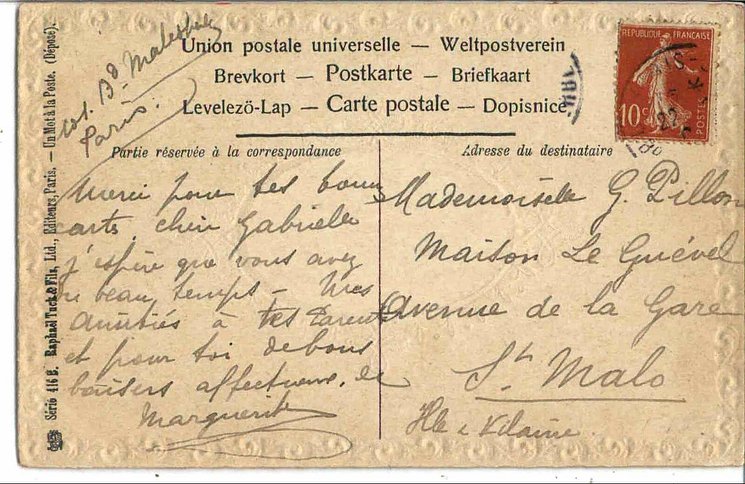 101. Bd Malesherbes
Paris.
Union postale universelle — Weltpostverein
Brevkort — Postkarte — Briefkaart
Levelezö-Lap — Carte postale — Dopisnice
Partie réservée à la correspondance
Adresse du destinataire
REPUBLIQUE FRANÇAISE
10c
POSTES
22
Merci pour tes bonnes
carte, chère Gabrielle
j'espère que vous avez
du beau temps — Mes
amitiés à tes Parents
et pour toi de bons
baisers affectueux, de
Marguerite
Mademoiselle G. Pillon
Maison Le Guével
Avenue de la Gare
St. Malo
Ille & Vilaine
Série 416 B. Raphael Tuck & Fils, Ltd., Editeurs, Paris. — Un Mot à la Poste. (Déposé).